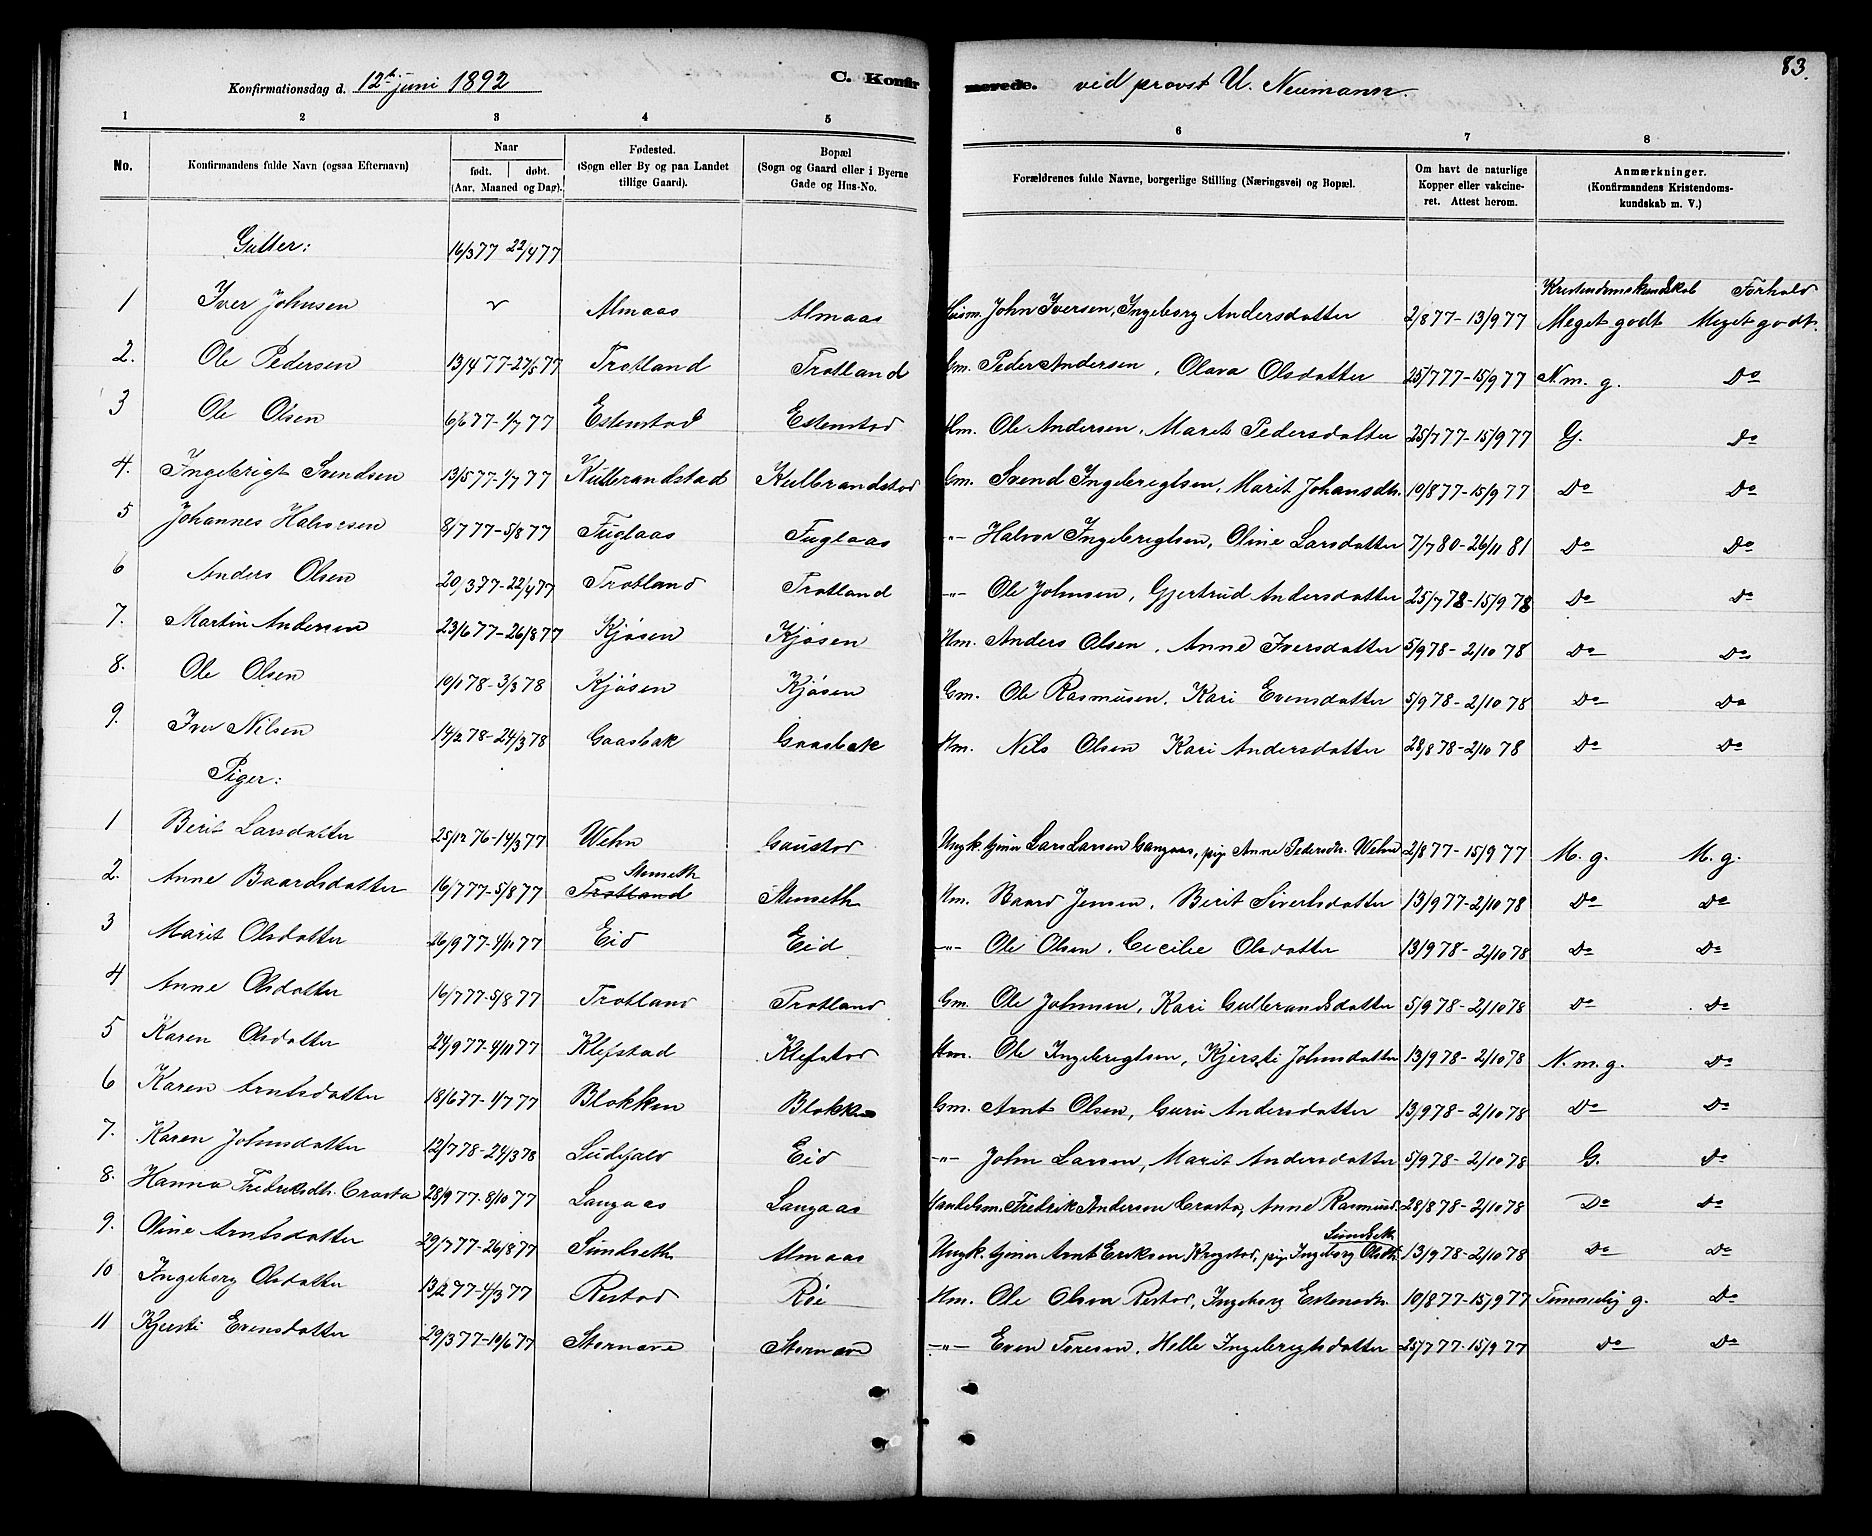 83.
Konfirmationsdag d. 12te juni 1892 C. Konfirmerede. ved provst U. Neumann.
1 2 3 4 5 6 7 8
No. Konfirmandens fulde Navn (ogsaa Efternavn) Naar født. døbt. (Aar, Maaned og Dag). Fødested. (Sogn eller By og paa Landet tillige Gaard). Bopæl (Sogn og Gaard eller i Byerne Gade og Hus-No. Forældrenes fulde Navne, borgerlige Stilling (Næringsvei) og Bopæl. Om havt de naturlige Kopper eller vakcineret. Attest herom. Anmærkninger. (Konfirmandens Kristendomskundskab m. V.)
Gutter: 16/3 77 22/4 77
Kristendomskundskab Forhold
1 Iver Johnsen Almaas Almaas Husm. John Iversen, Ingeborg Andersdatter 2/8 77 - 13/9 77 Meget godt Meget godt.
2. Ole Pedersen 13/4 77 - 27/5 77 Trotland Trotland Gm. Peder Andersen, Olava Olsdatter 25/7 77 - 15/9 77 N. m. g. Do
3 Ole Olsen 6/6 77 - 1/7 77 Estenstad Estenstad Hm. Ole Andersen, Marit Pedersdatter 25/7 77 - 15/9 77 G. Do
4. Ingebrigt Svendsen 13/5 77 - 1/7 77 Kulbrandstad Kulbrandstad Gm. Svend Ingebrigtsen, Marit Johansdtr. 19/8 77 - 15/9 77 Do Do
5 Johannes Halvorsen 8/7 77 - 5/8 77 Fuglaas Fuglaas -"- Halvor Ingebrigtsen, Oline Larsdatter 7/7 80 - 26/11 81 Do Do
6 Anders Olsen 20/3 77 - 22/4 77 Trotland Trotland -"- Ole Johnsen, Gjertrud Andersdatter 25/7 78 - 15/9 78 Do Do
7. Martin Andersen 23/6 77 - 26/8 77 Kjøsen Kjøsen Hm. Anders Olsen, Anne Iversdatter 5/9 78 - 2/10 78 Do Do
8. Ole Olsen 19/1 78 - 3/3 78 Kjøsen Kjøsen Gm. Ole Rasmusen, Kari Evensdatter 5/9 78 - 2/10 78 Do Do
9. Iver Nilsen 14/2 78 - 24/3 78 Gaasbak Gaasbak Hm. Nils Olsen Kari Andersdatter 28/8 78 - 2/10 78 Do Do
Piger:
1 Berit Larsdatter 25/12 76 - 14/3 77 Wehn Gaustad Ungk. Lars Larsen Langaas, pige Anne Pedersdtr. Wehn 2/8 77 - 15/9 77 M. g. M. g.
2. Anne Baardsdatter 16/7 77 - 5/8 77 Trotland Stenseth Stenseth Hm. Baard Jensen, Berit Sivertsdatter 13/9 77 - 2/10 78 Do Do
3 Marit Olsdatter 26/9 77 - 4/11 77 Eid Eid -"- Ole Olsen, Cecilie Olsdatter 13/9 78 - 2/10 78 Do Do
4 Anne Olsdatter 16/7 77 - 5/8 77 Trotland Trotland Gm. Ole Johnsen, Kari Gulbrandsdatter 5/9 78 - 2/10 78 Do Do
5 Karen Olsdatter 24/9 77 - 4/11 77 Klefstad Klefstad Hm. Ole Ingebrigtsen, Kjersti Johnsdatter 13/9 78 - 2/10 78 N. m. g. Do
6 Karen Arntsdatter 18/6 77 - 1/7 77 Blokken Blokken Gm. Arnt Olsen, Guru Andersdatter 13/9 78 - 2/10 78 Do Do
7. Karen Johnsdatter 12/1 78 - 24/3 78 Eid -"- John Larsen, Marit Andersdatter 5/9 78 - 2/10 78 G. Do
8. Hanna Fredriksdtr. Crasta 28/9 77 - 8/10 77 Langaas Langaas Handelsm. Fredrik Andersen Crasta, Anne Rasmusd. 28/8 78 - 2/10 78 Do Do
9. Oline Arntsdatter 29/7 77 - 26/8 77 Sundseth Almaas Ungk. Arnt Eriksen, pige Ingeborg Olsdtr. Sundseth 13/9 78 - 2/10 78 Do Do
10 Ingeborg Olsdatter 13/2 77 - 4/3 77 Restad Røe Hm. Ole Olsen Restad, Ingeborg Estensdtr. 10/8 77 - 15/9 77 Temmelig g. Do
11 Kjersti Evensdatter 29/3 77 - 10/6 77 Stornave Stornave -"- Even Toresen, Helle Ingebrigtsdatter 25/7 77 - 15/9 77 Do Do